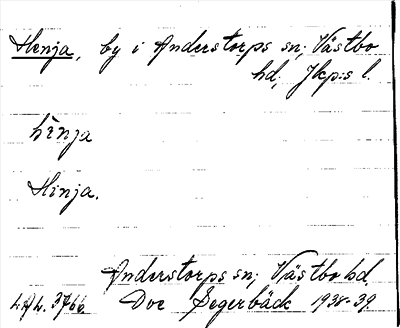 Henja, by i Anderstorps sn; Västbo
hd, Jkp:s l.
hìnja
Hinja.
Anderstorps sn; Västbo hd.
Doc Segerbäck 1938-39.